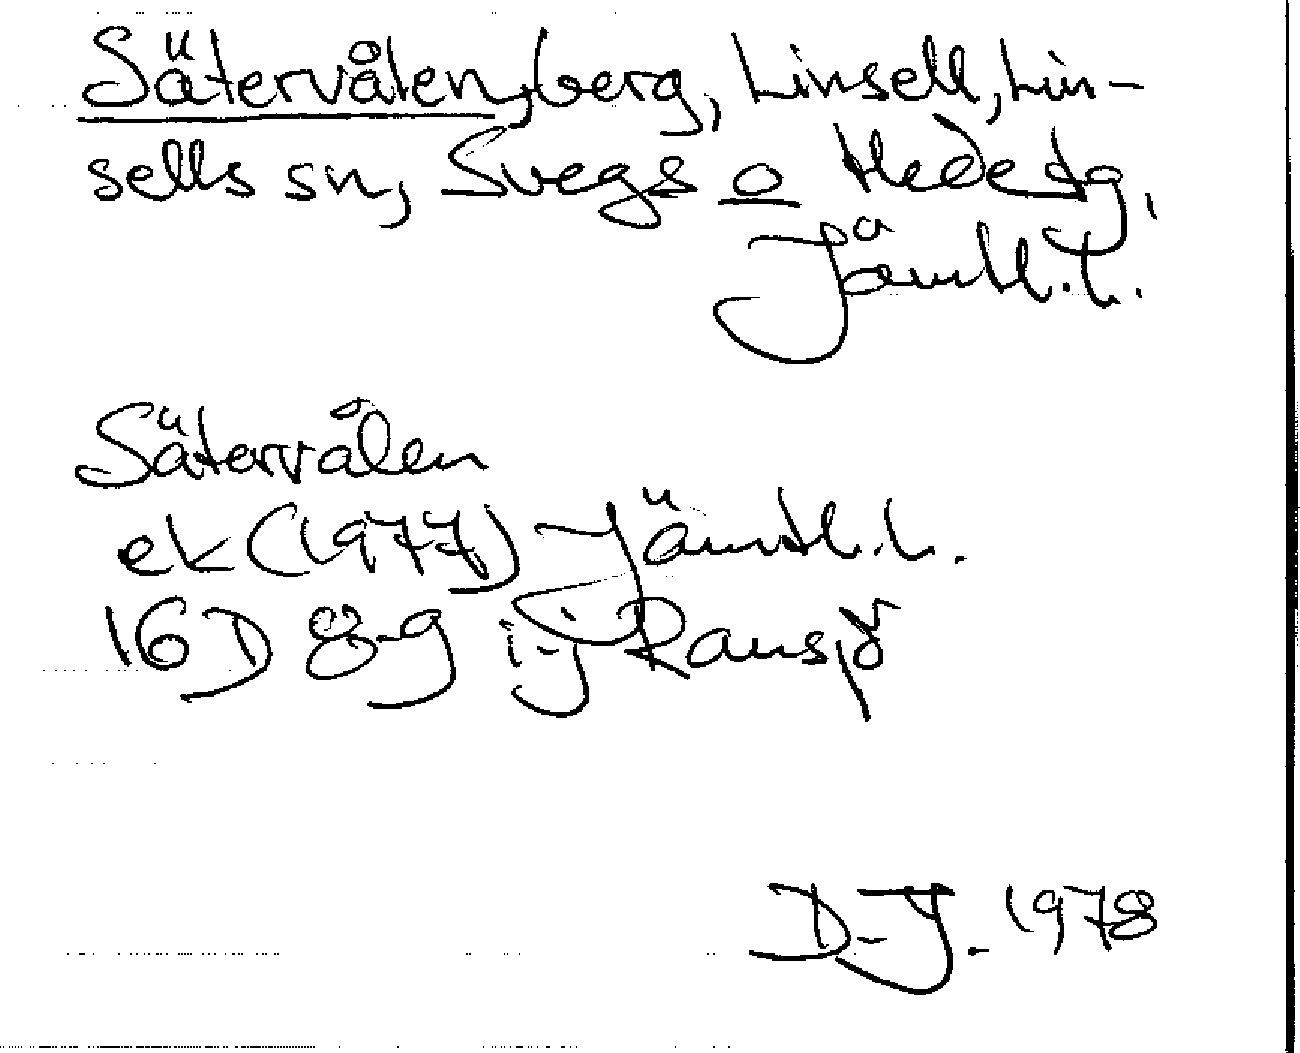 Sätervålen, berg, Linsell, Lin-
sells sn, Svegs o Hede tg,
Jämtl.l.
Sätervålen
ek (1977) Jämtl.l.
16D 8-g i-j Ransjö
D-J. 1978